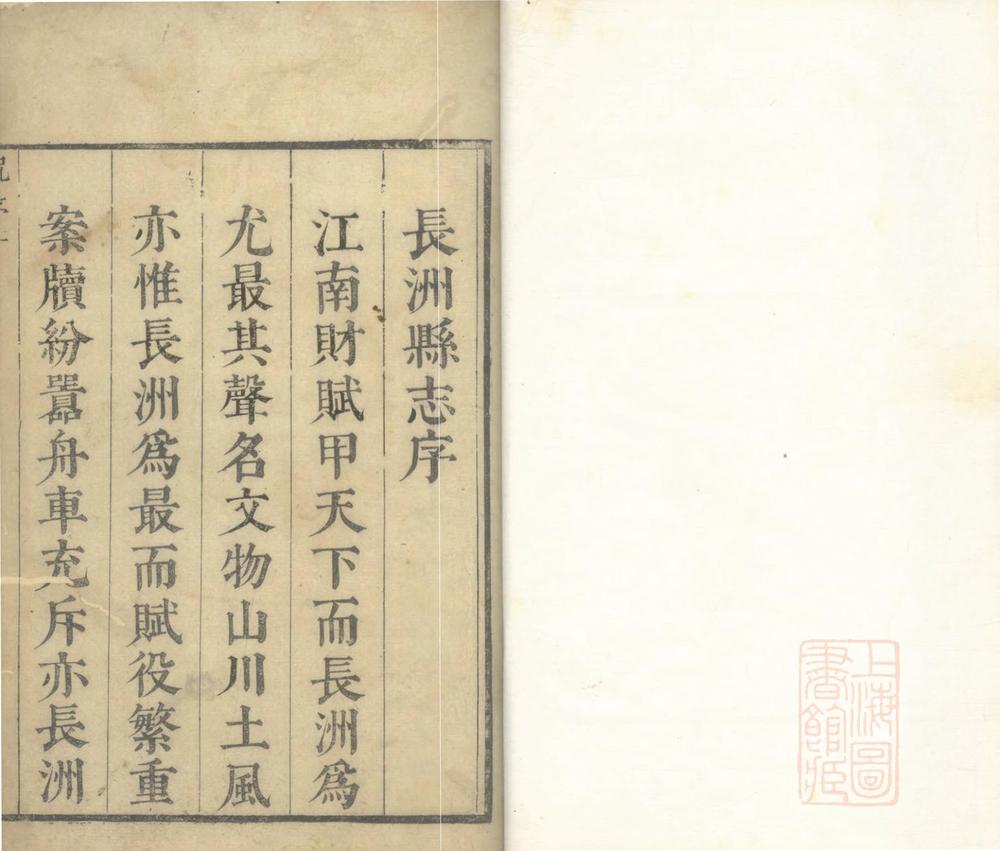 上海圖
書館藏
長洲縣志序
江南財賦甲天下而長洲爲
尤最其聲名文物山川土風
亦惟長洲爲最而賦役繁重
案牘紛囂舟車充斥亦長洲